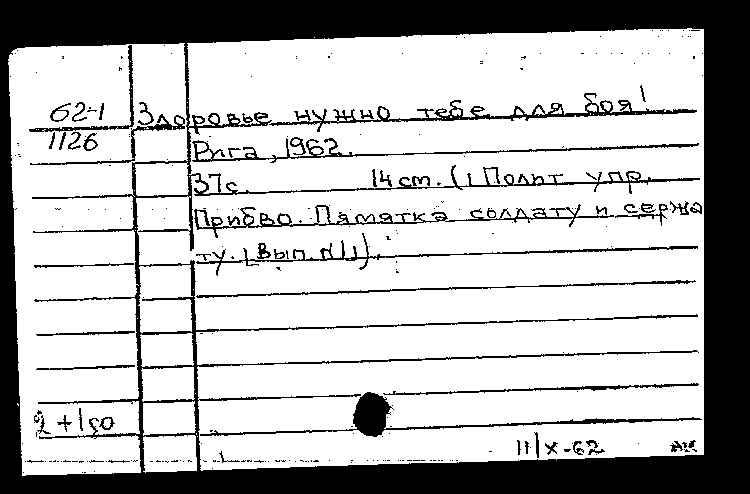 62-1 Здоровье нужно тебе для боя!
1126
Рига, 1962.
37с. 14 cm. (Полит упр.
Прибво. Памятка солдату и сержа
ту. [Вып. N/1]).
2 +1
11/X-62 АК